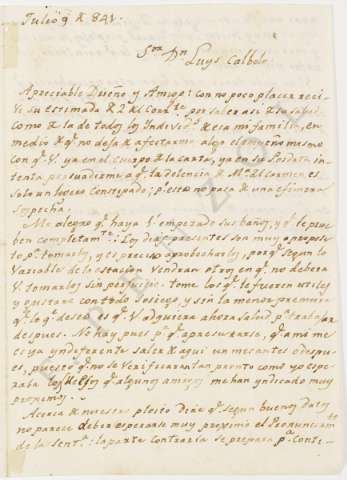 Julio 9 de 841.
Sor. Dn Luys Calbolo
Apreciable Dueño y Amigo: con no poco placer reci-
vi su estimada de 2 del Corrte. por saber asi de su salud
como de la de todos los Indevidos. de esa mi familia, en
medio de qe. no deja de afectarme algo el empeño mesmo
con qe. V. ya en el cuerpo de la carta, ya en su Posdata in-
tenta persuadirme qe. la dolencia de Ma. del Carmen es
solo un lijero Constipado; ps. esto no pasa de una efimera
sospecha.
Me alegro qe. haya V. empezado sus baños, y qe. le prue-
ben completamte.: Los dias presentes son muy aproposi-
to pa. tomarlos, y es preciso aprobecharlos, porqe. segun lo
Variable de la estacion vendran otros en qe. no debera
V. tomarlos sin perjuicio. tome los qe. le fueren utiles
y necesare con todo sosiego y sin la menor premura
qe. lo qe. deseo es qe. V. adquiera ahora Salud pa. trabajar
despues. No hay pues pa. qe. apresurarse, qe. a mi me
es ya yndeferente saler de aqui un mes antes o despu-
es, puesto qe. no se verificaran tan pronto como yo espe-
raba los qe. algunos amigos me han yndicado muy
proximos.
Acerca de nuestro pleito dire qe. segun buenos datos
no parece deber esperarse muy proximo el pronunciamto.
de la Senta.: la parte contraria se prepara pa. conti-